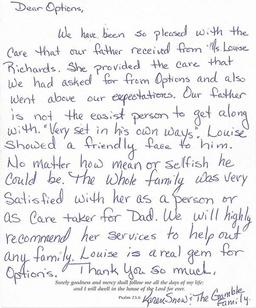 Dear Options,
We have been so pleased with the
care that our father received from Ms Louise
Richards. She provided the care that
we had asked for from Options and also
went above our expectations. Our father
is not the easist person to get along
with. "Very set in his own ways". Louise
showed a friendly face to him.
No matter how mean or selfish he
could be. The whole family was very
Satisfied with her as a person or
as care taker for Dad. We will highly
recommend her services to help out
any family. Louise is a real gem for
Option's. Thank you so much,
Surely goodness and mercy shall follow me all the days of my life;
and I will dwell in the house of the Lord for ever.
Psalm 23:6
Snow & The Gamble
Family.